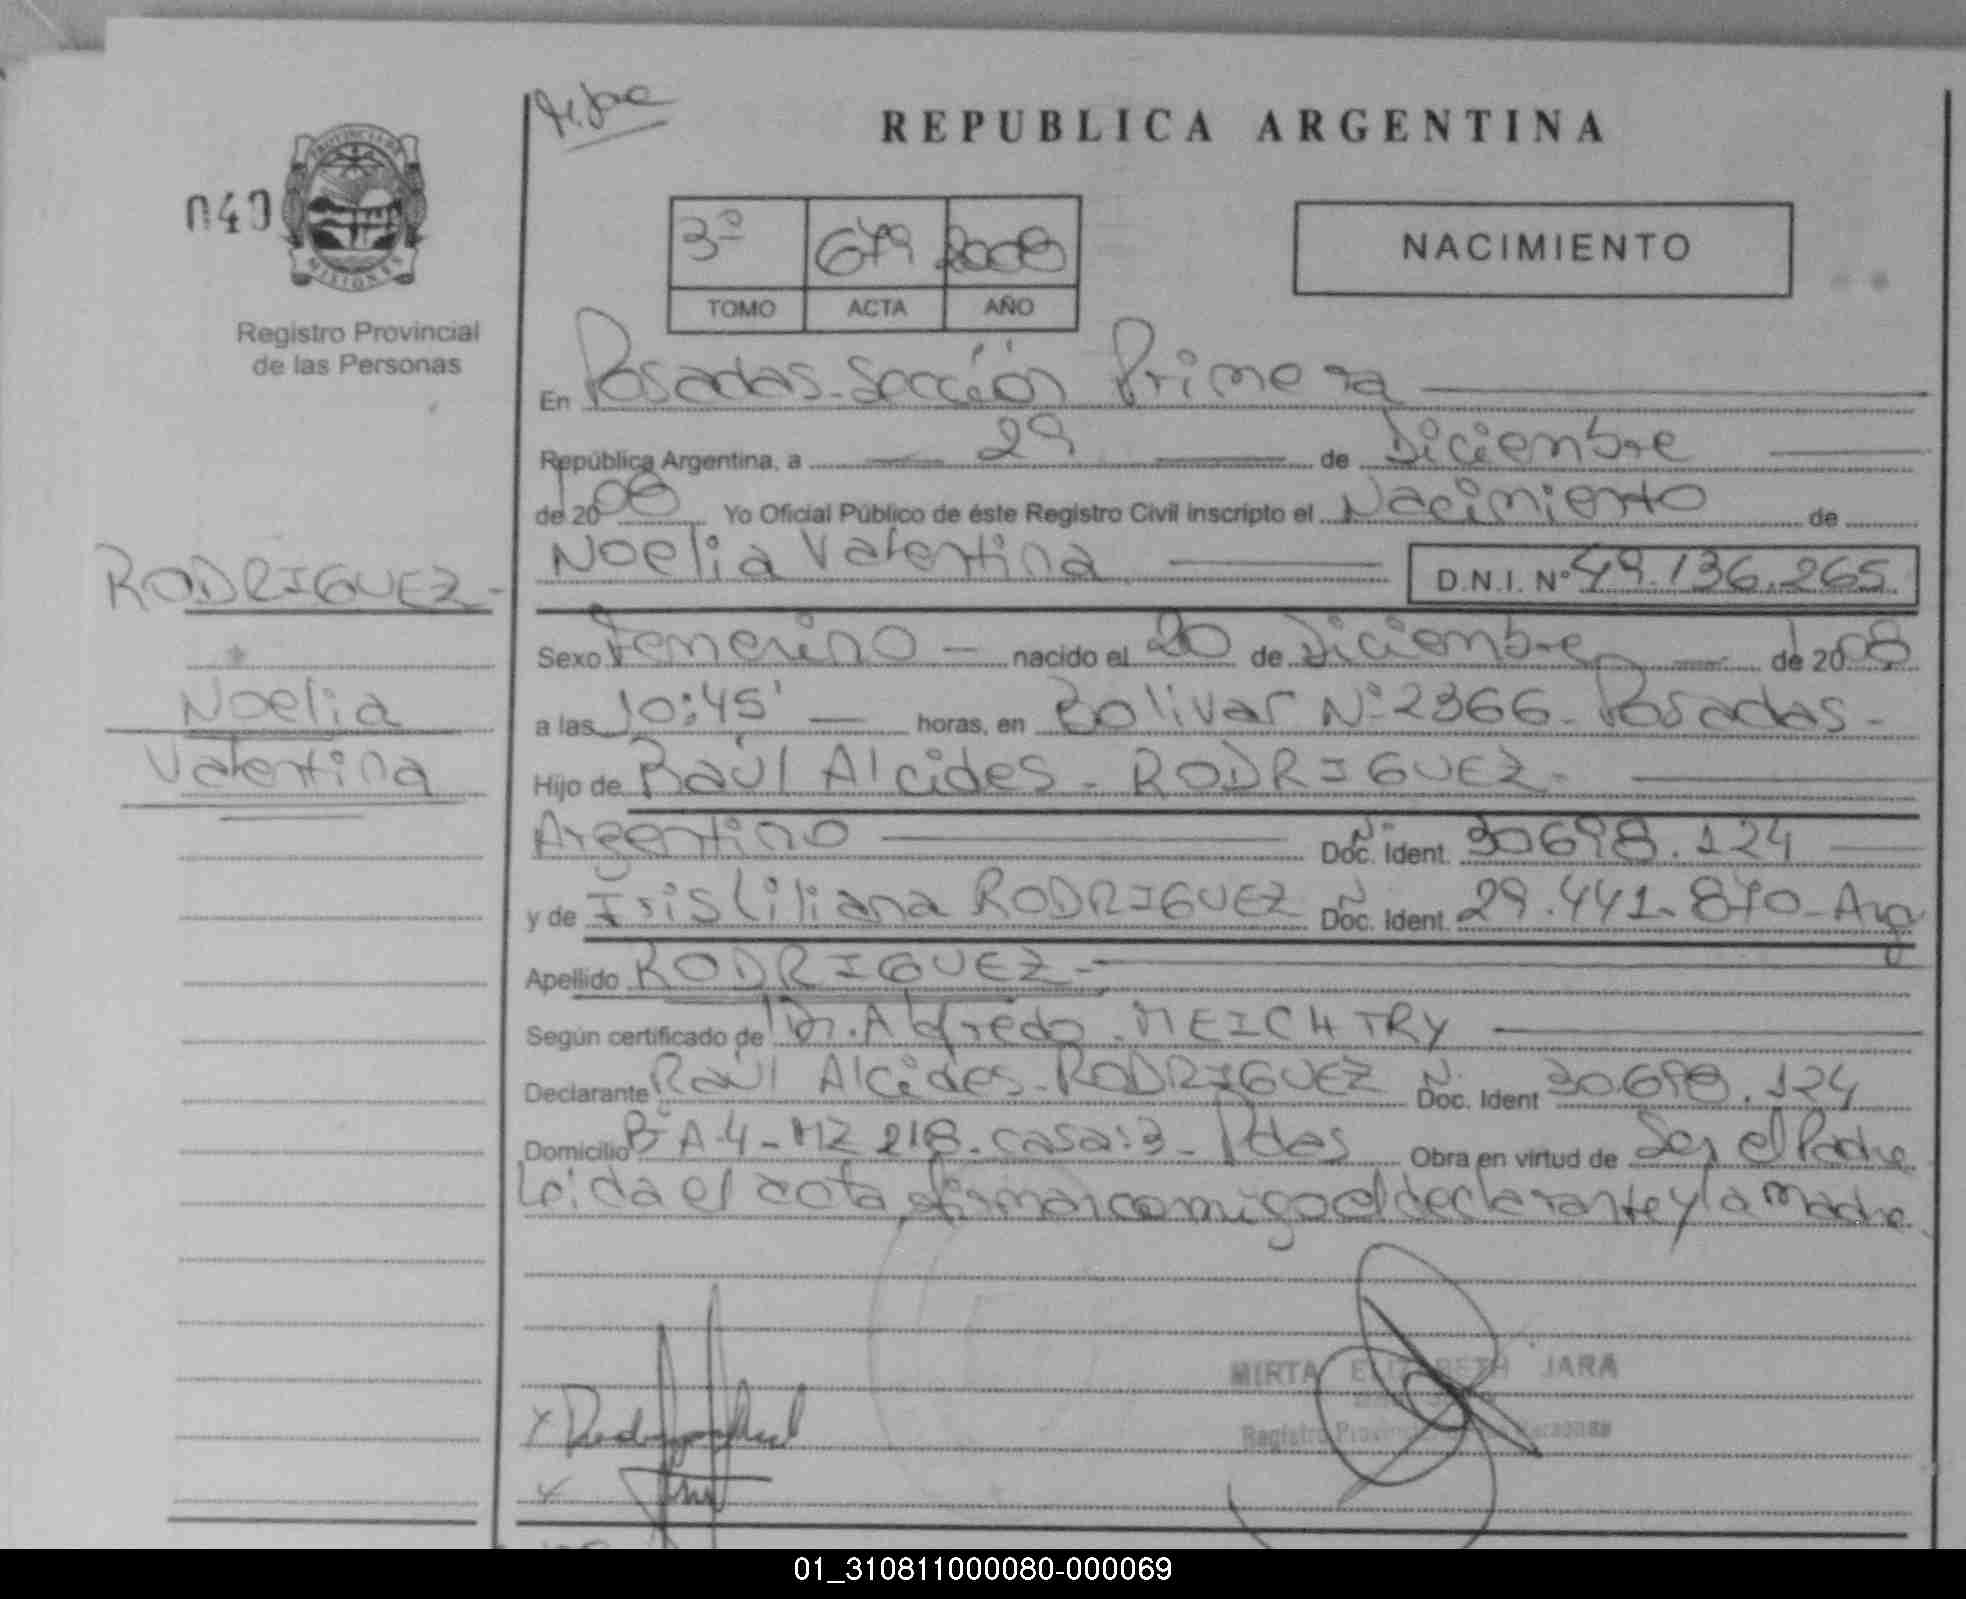 REPUBLICA ARGENTINA
040
PROVINCIA DE
MISIONES
Registro Provincial
de las Personas
3º 679 2008
TOMO ACTA AÑO
NACIMIENTO
En Posadas-Sección Primera
República Argentina, a 29 de Diciembre
de 2008 Yo Oficial Público de éste Registro Civil inscripto el Nacimiento de
Noelia Valentina D.N.I. Nº 49.136.265
RODRIGUEZ-
Noelia
Valentina
Sexo Femenino - nacido el 20 de Diciembre de 2008
a las 10:45' horas, en Bolivar Nº 2366- Posadas-
Hijo de Raúl Alcides - RODRIGUEZ-
Argentino Doc. Ident. Nº 30698.124
y de Iris Liliana RODRIGUEZ Doc. Ident. Nº 29.441.870-Arg
Apellido RODRIGUEZ-
Según certificado de Dr. Alfredo MEICHTRY
Declarante Raúl Alcides-RODRIGUEZ Doc. Ident Nº 30698.124
Domicilio Bº A-4-MZ 218-casa:3-Pdas Obra en virtud de Ser el Padre
Leida el acta, firman conmigo el declarante y la madre.
MIRTA ELIZABETH JARA
Registro Provincial Personas
01_310811000080-000069